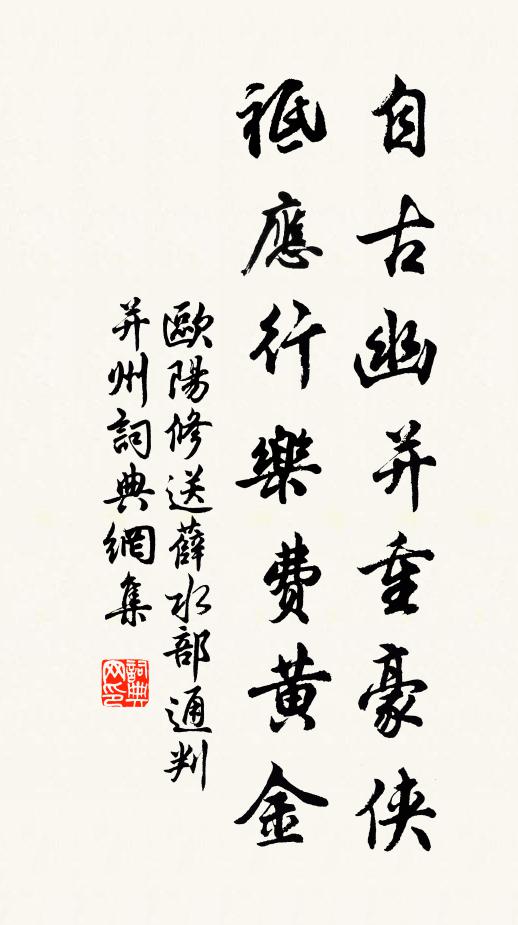 自古幽并重豪俠
祗應行樂費黃金
歐陽修送薛水部通判
并州詞典網集
詞典網印